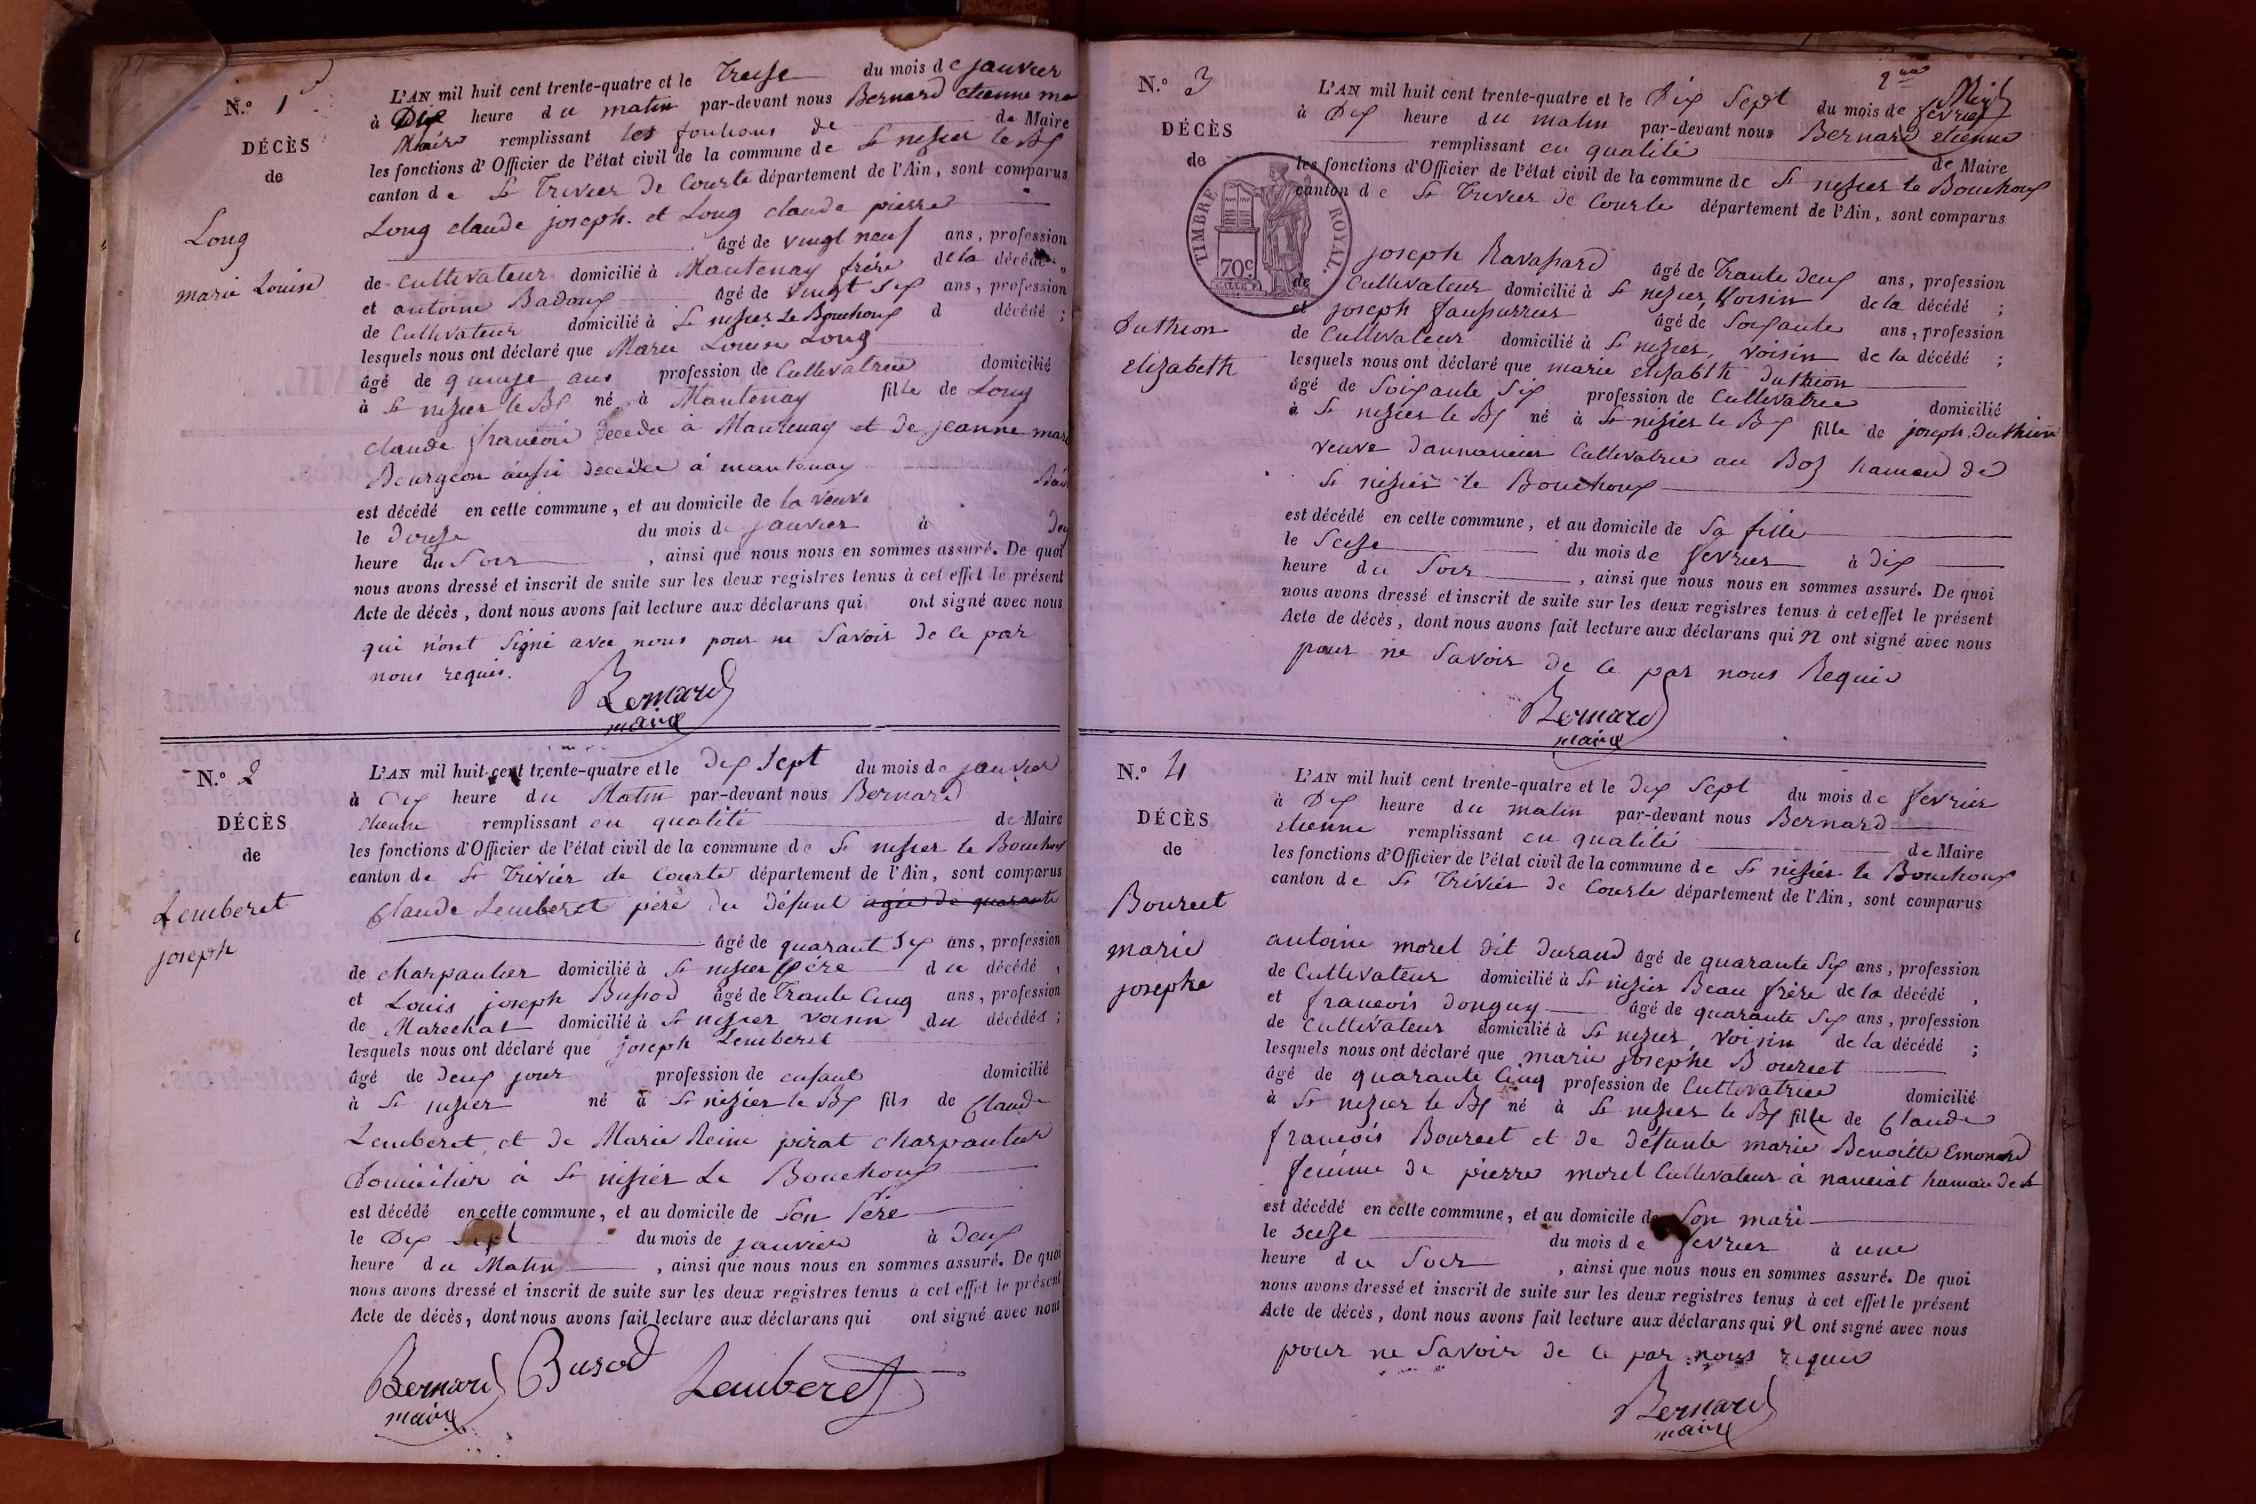 N.° 1
DÉCÈS
de
Long
marie Louise
L'AN mil huit cent trente-quatre et le Treise du mois de janvier
à Dix heure du matin par-devant nous Bernard etienne
Maire remplissant les fontions de de Maire
les fonctions d'Officier de l'état civil de la commune de St nisier le Bx
canton de St Trivier de Courte département de l'Ain, sont comparus
Long claude joseph. et Long claude pierre
âgé de vingt neuf ans, profession
de cultivateur domicilié à Mantenay frère de la décédé
et antoine Badoux âgé de vingt Six ans, profession
de Cultivateur domicilié à St nisier Le Bouchoux d décédé ;
lesquels nous ont déclaré que Marie Louise Long
âgé de quinze ans profession de Cultivatrice domicilié
à St nisier le Bx né à Mantenay fille de Long
claude francois décédé à Mantenay et de jeanne
Bourgeon aussi décédé à mantenay
est décédé en cette commune, et au domicile de la veuve
le Douse du mois de janvier à
heure du Soir , ainsi que nous nous en sommes assuré. De quoi
nous avons dressé et inscrit de suite sur les deux registres tenus à cet effet le présent
Acte de décès, dont nous avons fait lecture aux déclarans qui ont signé avec nous
qui n'ont Signé avec nous pour ne Savoir de ce par
nous requis.
Bernard
maire
N.° 2
DÉCÈS
de
Lemberet
joseph
L'AN mil huit cent trente-quatre et le Dix Sept du mois de janvier
à Dix heure du Matin par-devant nous Bernard
etienne remplissant en qualité de Maire
les fonctions d'Officier de l'état civil de la commune de St nisier le Bouchoux
canton de St Trivier de Courte département de l'Ain, sont comparus
Claude Lemberet père du défunt agée de quarante
âgé de quarant Six ans, profession
de charpantier domicilié à St nisier père du décédé ,
et Louis joseph Bussod âgé de Trante Cinq ans, profession
de Marechat domicilié à St nisier voisin du décédés ;
lesquels nous ont déclaré que joseph Lemberet
âgé de Deux jour profession de enfant domicilié
à St nisier né à St nisier le Bx fils de Claude
Lemberet et de Marie Reine pirat charpantier
Domicilier à St nisier Le Bouchoux
est décédé en cette commune, et au domicile de Son Père
le Dix Sept du mois de janvier à Deux
heure du Matin , ainsi que nous nous en sommes assuré. De quoi
nous avons dressé et inscrit de suite sur les deux registres tenus à cet effet le présent
Acte de décès, dont nous avons fait lecture aux déclarans qui ont signé avec nous
Bernard Busod Lemberet
maire
2me
N.° 3
DÉCÈS
de
TIMBRE ROYAL
70c
Duthion
elizabeth
L'AN mil huit cent trente-quatre et le Dix Sept du mois de fevrier
à Dix heure du matin par-devant nous Bernard etienne
remplissant en qualité de Maire
les fonctions d'Officier de l'état civil de la commune de St nisier le Bouchoux
canton de St Trivier de Courte département de l'Ain, sont comparus
joseph Ravassard âgé de Trante Deux ans, profession
de Cultivateur domicilié à St nisier, Voisin de la décédé ;
et joseph âgé de Soixante ans, profession
de Cultivateur domicilié à St nisier, voisin de la décédé ;
lesquels nous ont déclaré que marie elisabth Duthion
âgé de Soixante Six profession de Cultivatrice domicilié
à St nisier le Bx né à St nisier le Bx fille de joseph. Duthion
veuve Cultivatrice au hameau de
St nisier le Bouchoux
est décédé en cette commune, et au domicile de Sa fille
le Seise du mois de fevrier à dix
heure du Soir , ainsi que nous nous en sommes assuré. De quoi
nous avons dressé et inscrit de suite sur les deux registres tenus à cet effet le présent
Acte de décès, dont nous avons fait lecture aux déclarans qui N ont signé avec nous
pour ne Savoir de ce par nous Requis
Bernard
maire
N.° 4
DÉCÈS
de
Bourcet
marie
josephe
L'AN mil huit cent trente-quatre et le Dix Sept du mois de fevrier
à Dix heure du matin par-devant nous Bernard
etienne remplissant en qualité de Maire
les fonctions d'Officier de l'état civil de la commune de St nisier le Bouchoux
canton de St Trivier de Courte département de l'Ain, sont comparus
antoine morel dit durand âgé de quarante Six ans, profession
de Cultivateur domicilié à St nisier Beau frère de la décédé ,
et francois Donguy âgé de quarante Six ans, profession
de Cultivateur domicilié à St nisier, Voisin de la décédé ;
lesquels nous ont déclaré que marie josephe Bourcet
âgé de quarante Cinq profession de Cultivatrice domicilié
à St nisier le Bx né à St nisier le Bx fille de Claude
francois Bourcet et de défunte marie Benoitte Emonard
femme de pierre morel Cultivateur à hamau de St
est décédé en cette commune, et au domicile de Son mari
le Seise du mois de fevrier à une
heure du Soir , ainsi que nous nous en sommes assuré. De quoi
nous avons dressé et inscrit de suite sur les deux registres tenus à cet effet le présent
Acte de décès, dont nous avons fait lecture aux déclarans qui N ont signé avec nous
pour ne Savoir de ce par nous requis
Bernard
maire